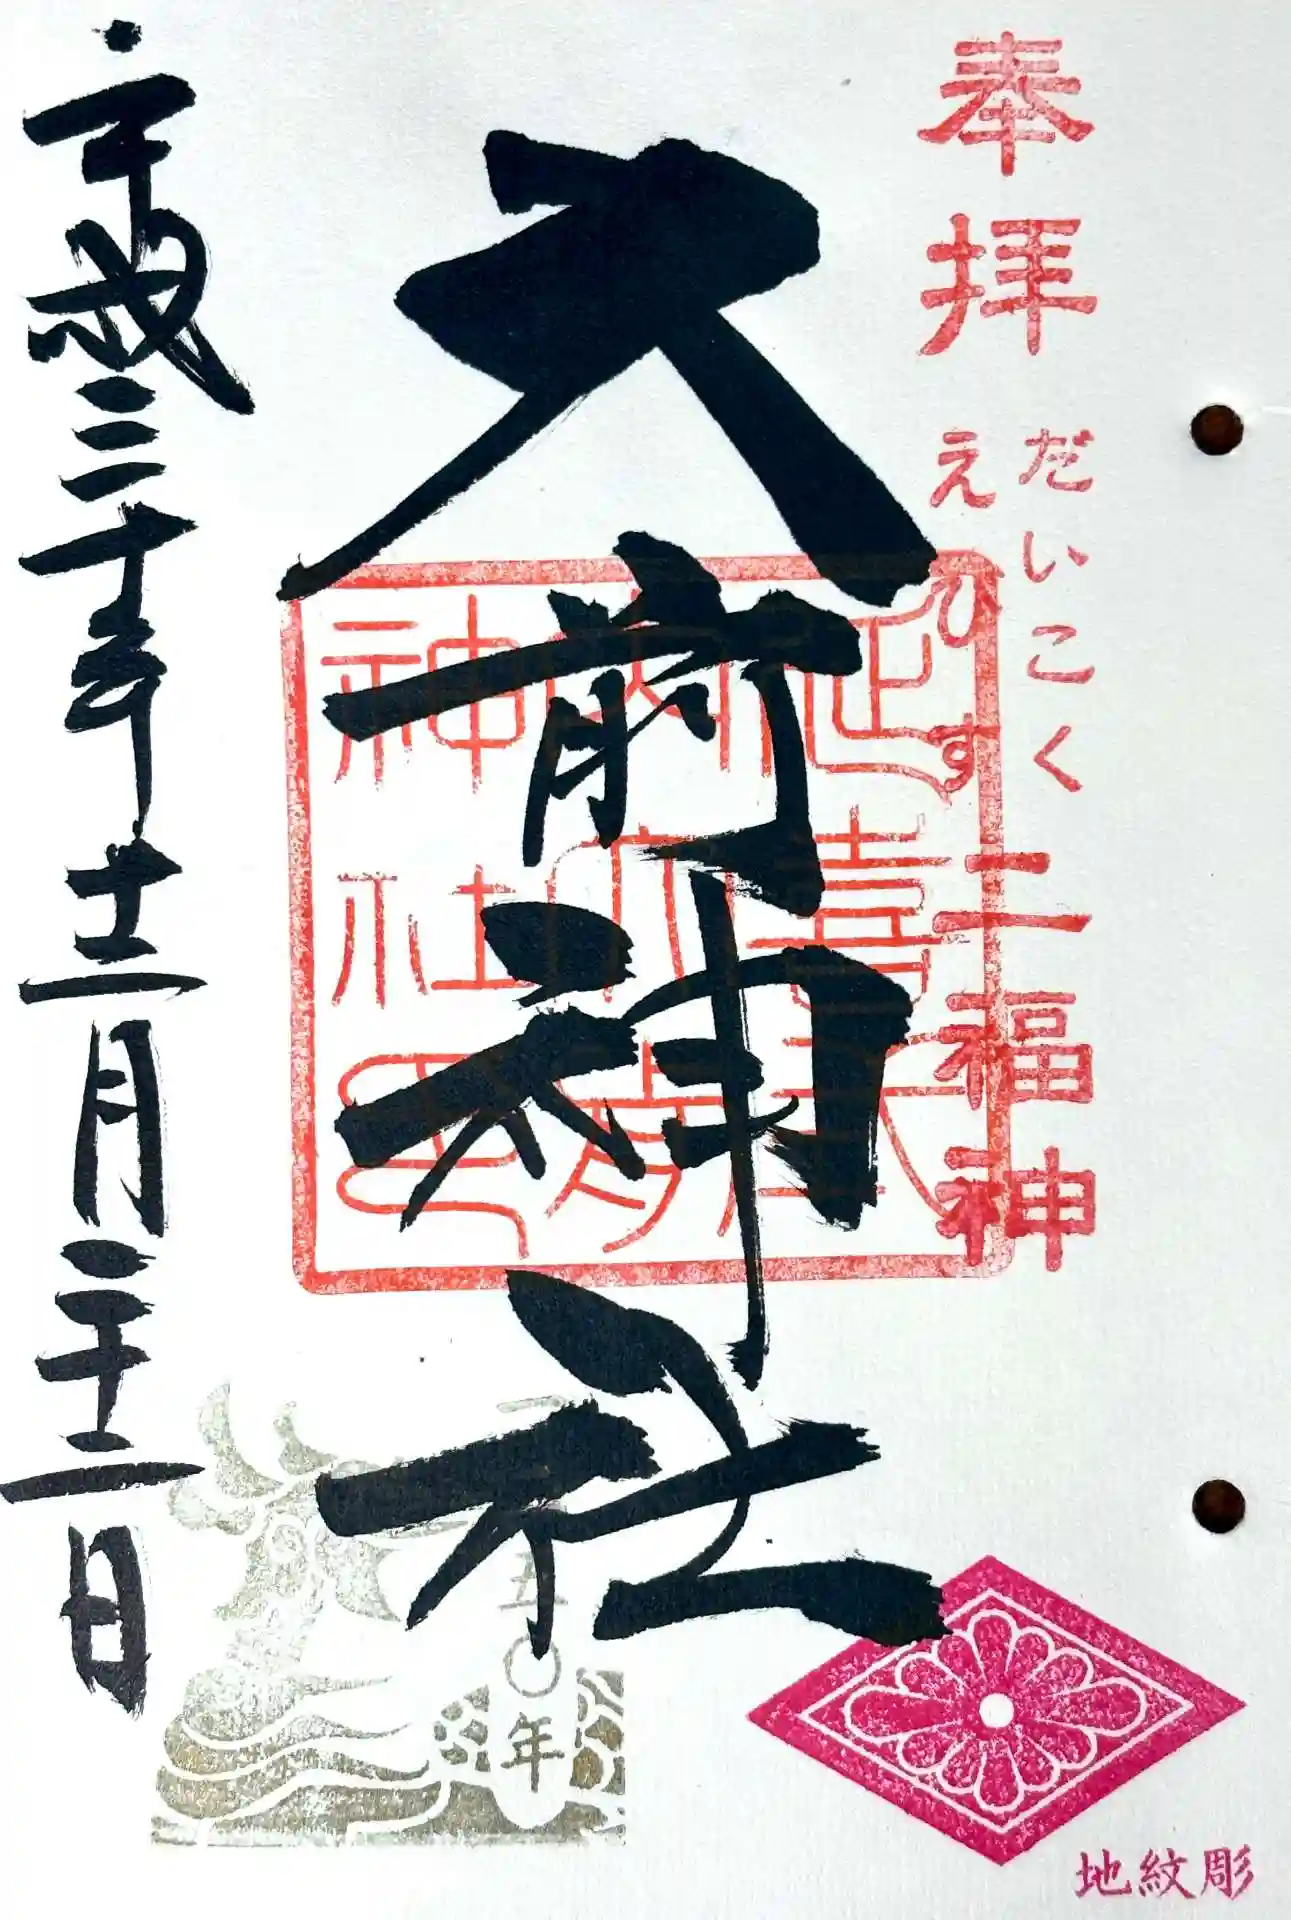 奉拝
だいこく
えひす
二福神
大前神社
延喜式
内大前
神社印
平成三十年十二月二十二日
年
地紋彫